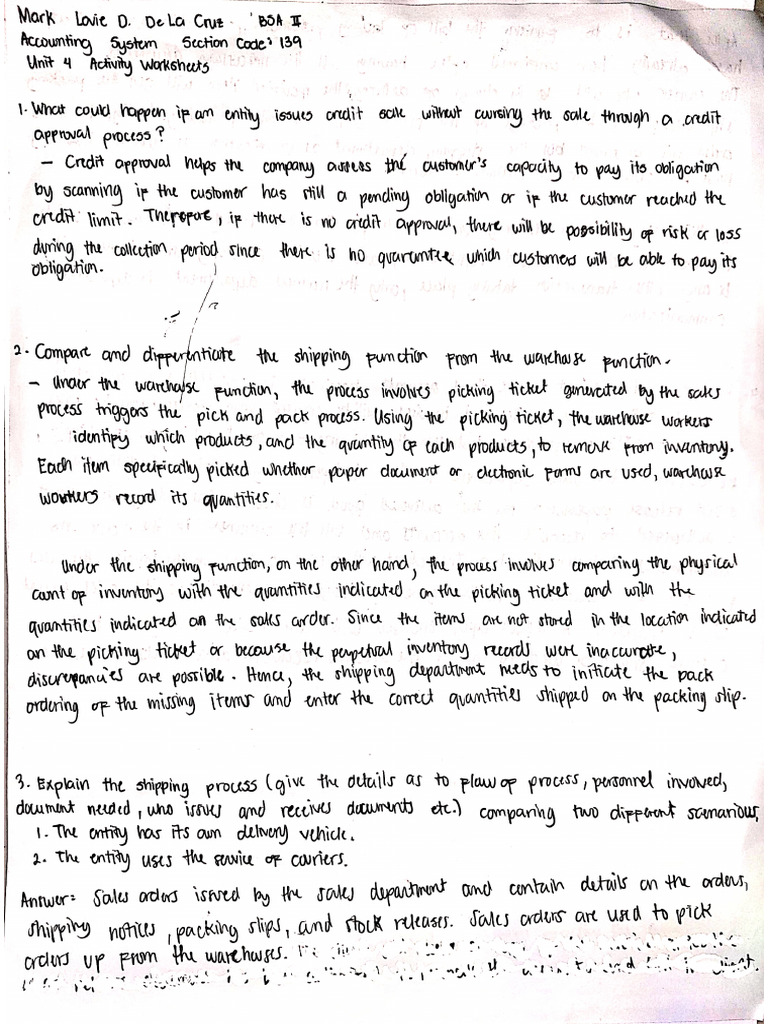 Mark Lovie D. De La Cruz BSA II
Accounting System Section Code: 139
Unit 4 Activity Worksheets
1. What could happen if an entity issues credit sale without cursing the sale through a credit
approval process?
- Credit approval helps the company assess the customer's capacity to pay its obligation
by scanning if the customer has still a pending obligation or if the customer reached the
credit limit. Therefore, if there is no credit approval, there will be possibility of risk or loss
during the collection period since there is no guarantee which customers will be able to pay its
obligation.
2. Compare and differentiate the shipping function from the warehouse function.
- Under the warehouse function, the process involves picking ticket generated by the sales
process triggers the pick and pack process. Using the picking ticket, the warehouse workers
identify which products, and the quantity of each products, to remove from inventory.
Each item specifically picked whether paper document or electronic forms are used, warehouse
workers record its quantities.
Under the shipping function, on the other hand, the process involves comparing the physical
count of inventory with the quantities indicated on the picking ticket and with the
quantities indicated on the sales order. Since the items are not stored in the location indicated
on the picking ticket or because the perpetual inventory records were inaccurate,
discrepancies are possible. Hence, the shipping department needs to initiate the back
ordering of the missing items and enter the correct quantities shipped on the packing slip.
3. Explain the shipping process (give the details as to flow of process, personnel involved,
document needed, who issues and receives documents etc.) comparing two different scenarios;
1. The entity has its own delivery vehicle.
2. The entity uses the service of carriers.
Answer: Sales orders issued by the sales department and contain details on the orders,
shipping notices, packing slips, and stock releases. Sales orders are used to pick
orders up from the warehouses.